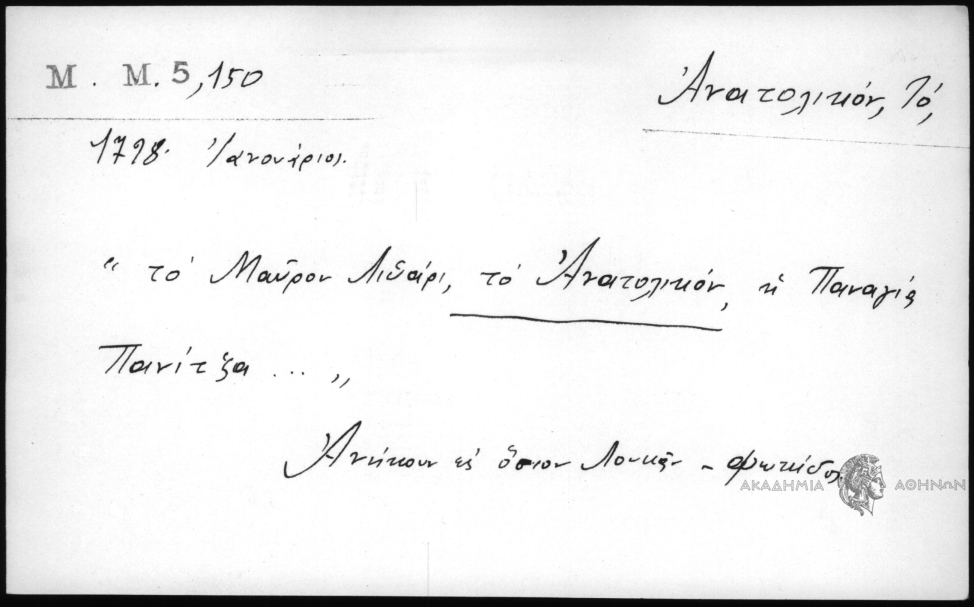 M. M. 5, 150
Ἀνατολικόν, Τό,
1798. Ἰανουάριος.
" τὸ Μαῦρον Λιθάρι, τὸ Ἀνατολικόν, ἡ Παναγία
Πανίτζα ... "
Ἀνήκουν εἰς ὅσιον Λουκᾶν - Φωκίδος
ΑΚΑΔΗΜΙΑ ΑΘΗΝΩΝ